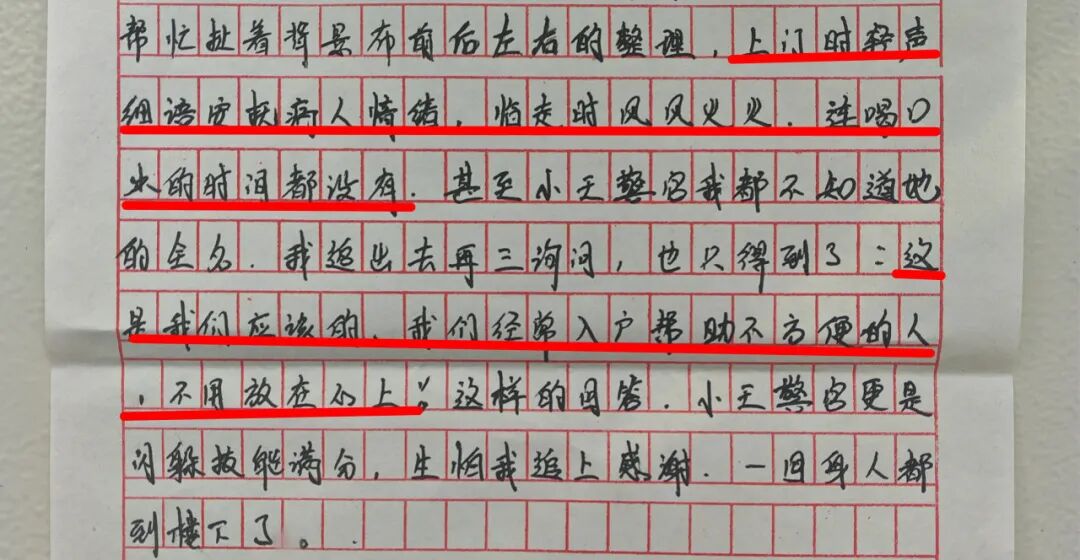 帮忙扯着背景布前后左右的整理，上门时轻声
细语安抚病人情绪，临走时风风火火，连喝口
水的时间都没有，甚至小王警官我都不知道她
的全名，我追出去再三询问，也只得到了：这
是我们应该的，我们经常入户帮助不方便的人
，不用放在心上。”这样的回答，小王警官更是
闪躲技能满分，生怕我追上感谢，一回身人都
到楼下了。